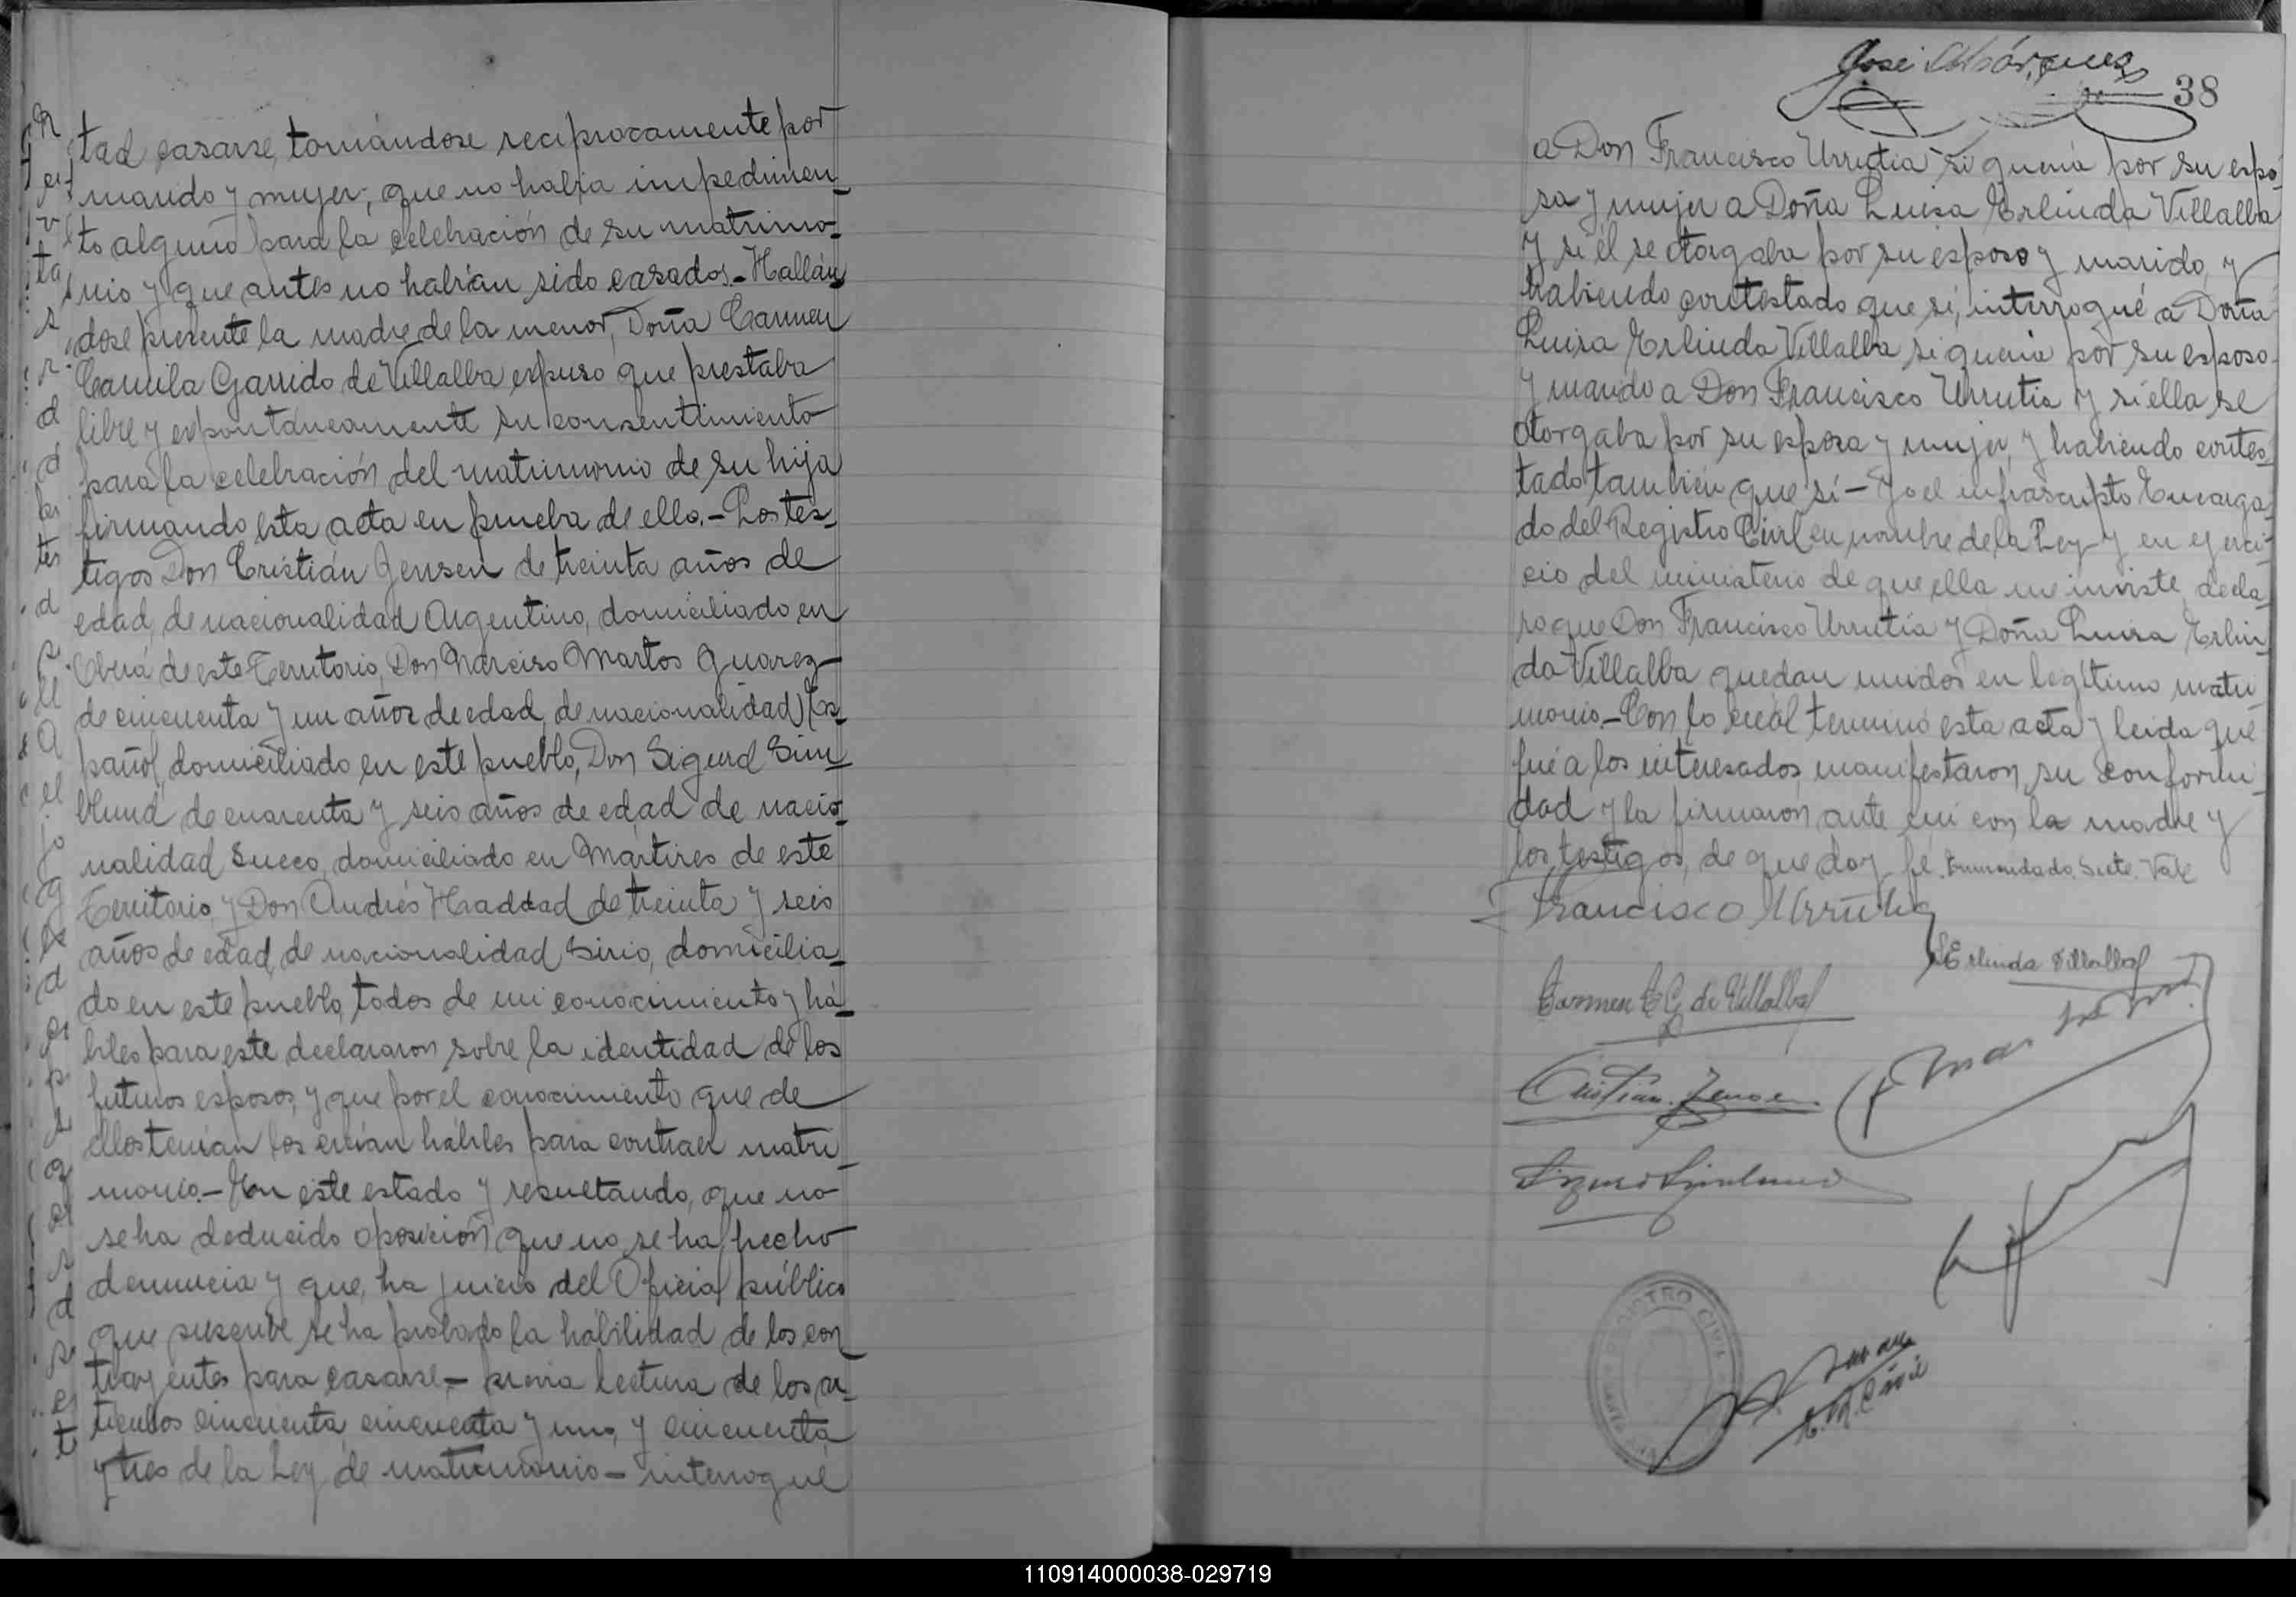 tad casarse, tomándose reciprocamente por
marido y mujer; que no había impedimen_
to alguno para la celebración de su matrimo_
nio y que antes no habían sido casados.- Hallán
dose presente la madre de la menor, Doña Carmen
Camila Garrido de Villalba expuso que prestaba
libre y espontáneamente su consentimiento
para la celebración del matrimonio de su hija
firmando esta acta en prueba de ello.- Los tes_
tigos Don Cristián Jensen de treinta años de
edad, de nacionalidad Argentino, domiciliado en
Oberá de este Territorio, Don Narciso Martos Juarez
de cincuenta y un años de edad, de nacionalidad Es_
pañol, domiciliado en este pueblo, Don Sigurd
de cuarenta y seis años de edad de nacio_
nalidad Sueco, domiciliado en Mártires de este
Territorio, y Don Andrés Haddad de treinta y seis
años de edad, de nacionalidad Sirio, domicilia_
do en este pueblo, todos de mi conocimiento y há_
biles para este declararon sobre la identidad de los
futuros esposos, y que por el conocimiento que de
ellos tenían los creían hábiles para contraer matri_
monio.- En este estado y resultando, que no
se ha deducido oposición que no se ha hecho
denuncia y que, ha juicio del Oficial público
que suscribe se ha probado la habilidad de los con_
trayentes para casarse,- previa lectura de los ar_
tículos cincuenta, cincuenta y uno, y cincuenta
y tres de la Ley de matrimonio - interrogué
José Márquez
38
a Don Francisco Urrutia si quería por su espo_
sa y mujer a Doña Luisa Erlinda Villalba
y si él se otorgaba por su esposo y marido, y
habiendo contestado que sí, interrogué a Doña
Luisa Erlinda Villalba si quería por su esposo
y marido a Don Francisco Urrutia y si ella se
otorgaba por su esposa y mujer, y habiendo contes_
tado también que sí - Yo el infrascripto Encarga_
do del Registro Civil en nombre de la Ley y en ejerci_
cio del ministerio de que ella me inviste, decla_
ro que Don Francisco Urrutia y Doña Luisa Erlin_
da Villalba quedan unidos en legítimo matri_
monio.- Con lo cual terminó esta acta y leida que
fué a los interesados, manifestaron su conformi_
dad y la firmaron ante mi con la madre y
los testigos, de que doy fé. Enmendado. Siete. Vale
Francisco Urrutia
L Erlinda Villalba
Carmen C G de Villalba
Cristian Jensen
REGISTRO CIVIL
110914000038-029719